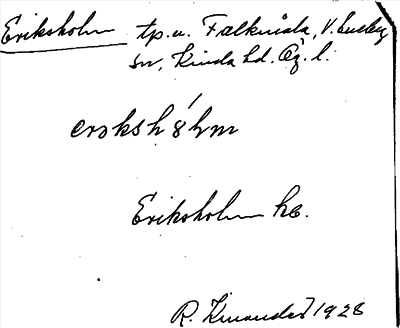 Eriksholm tp.u. Falknäla, V. Eneby
sn, Kinda hd. Ög. l.
erəkshó̜lm
Eriksholm ha.
R. Kinander 1928